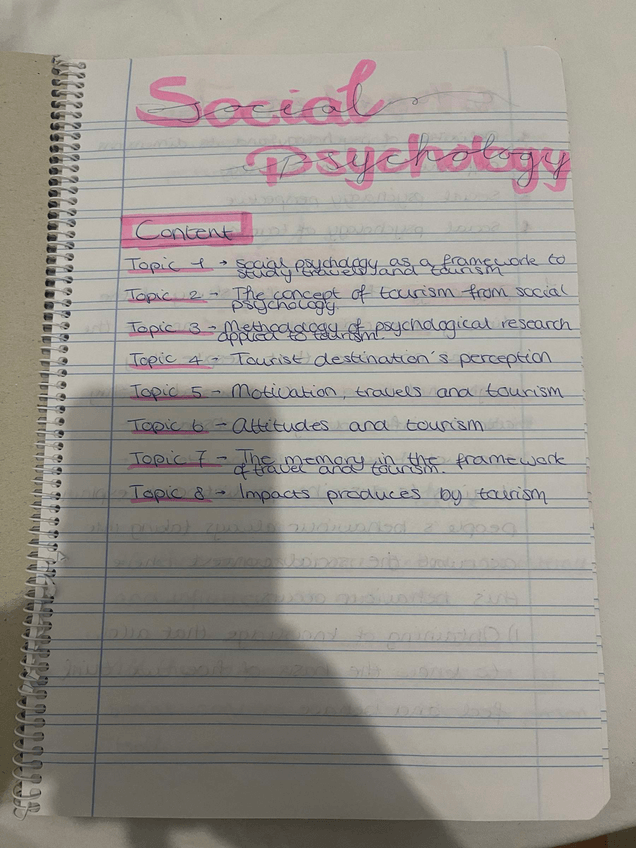 Social
psychology
Content
Topic 1 → social psychology as a framework to
study travels and tourism
Topic 2 - The concept of tourism from social
psychology.
Topic 3 - Methodology of psychological research
applied to tourism.
Topic 4 - Tourist destination's perception
Topic 5 - Motivation, travels and tourism
Topic 6 - Attitudes and tourism
Topic 7 - The memory in the framework
of travel and tourism.
Topic 8 - Impacts produces by tourism